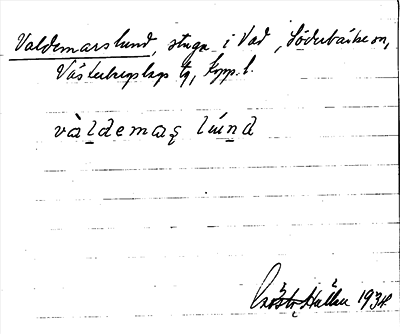 Valdemarslund, stuga i Vad, Söderbärke sn,
Västerbergslags tg, Kopp. l.
vàldemaș lúnd
Hallau 1934